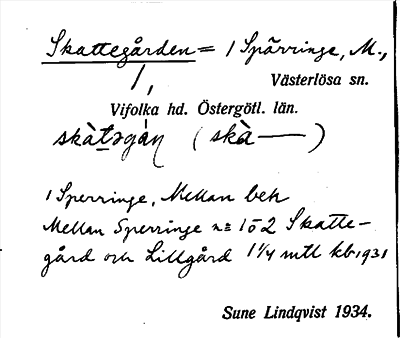 Skattegården = 1 Spärringe, M.,
1,
Västerlösa sn.
Vifolka hd. Östergötl. län.
skàtəgàṇ (skà—)
1 Sperringe, Mellan beh
Mellan Sperringe n= 1 o 2 Skatte-
gård och Lillgård 1 1/4 mtl kb 1931
Sune Lindqvist 1934.